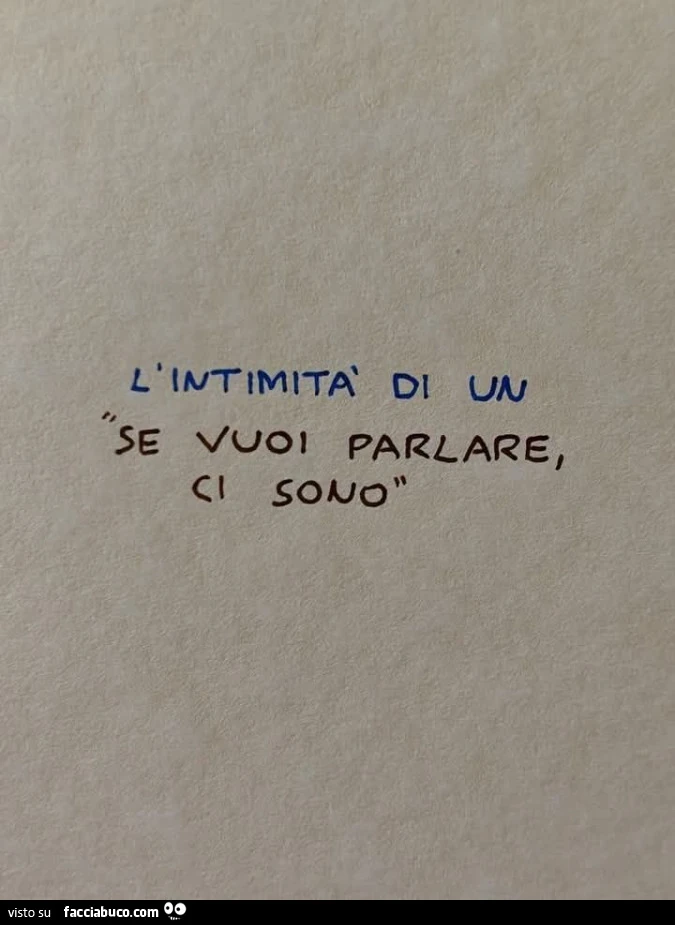 L'INTIMITA' DI UN
"SE VUOI PARLARE,
CI SONO"
visto su facciabuco.com